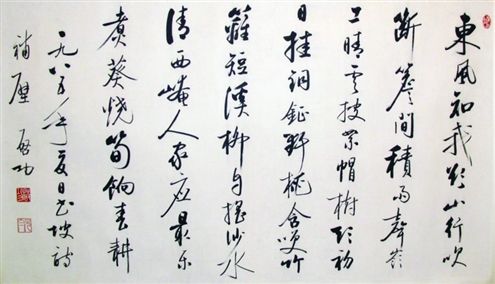 東風知我欲山行吹
斷簷間積雨聲嶺
上晴雲披絮帽樹頭初
日挂銅鉦野桃含笑竹
籬短溪柳自搖沙水
清西崦人家應最樂
煮葵燒筍餉春耕
一九八五年夏日書坡詩
補壁 啟功